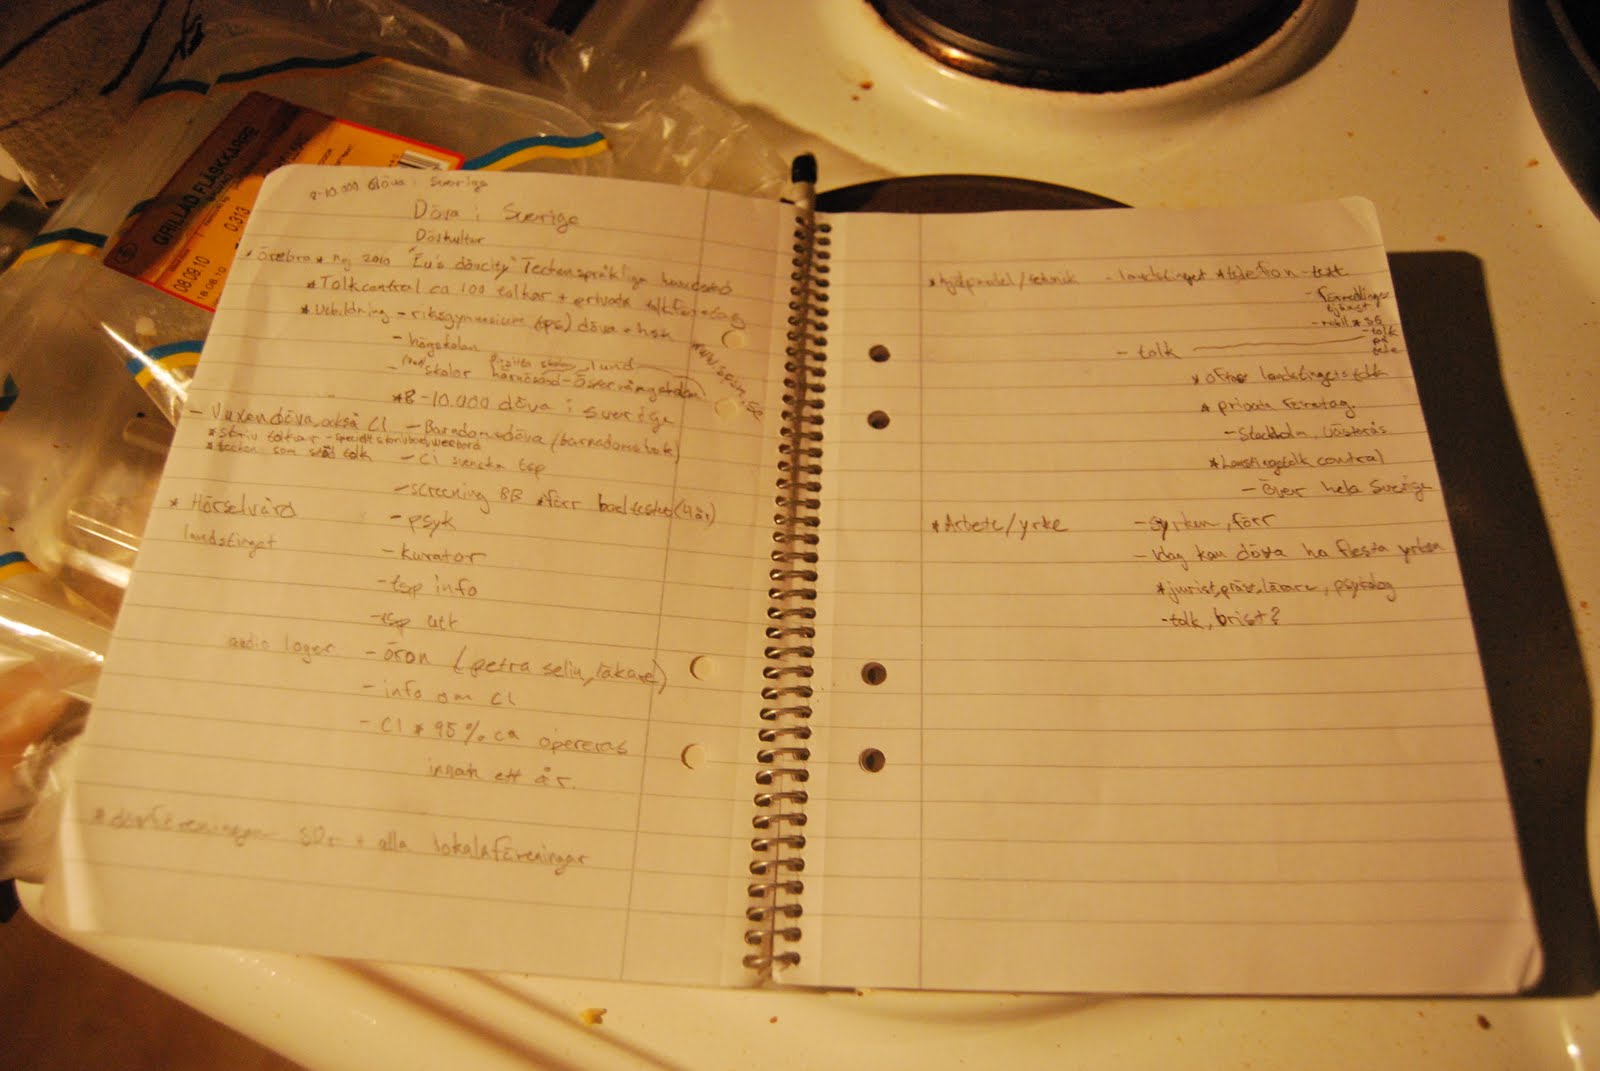 GRILLAD FLÄSKKARRE
0.313
08.09.10
18.08.10
8-10.000 döva i Sverige
Döva i Sverige
Dövkultur
* Örebro * nej 2010 "Eu's dövcity" Teckenspråkliga huvudstad
* Tolkcentral ca 100 tolkar + privata tolkföretag
* Utbildning - riksgymnasium (ps) döva + hsk
www.spsm.se
- högskolan
skolor härnösand - Östervångsskolan
lund
* 8-10.000 döva i Sverige
- Vuxendöva, också CI - Barndomsdöva / barndomshsk)
* skriv tolkar - speciellt skrivbord,
* tecken som stöd tolk - CI svenska tsp
- screening BB * förr boeltestet (4 år)
* Hörselvård - psyk
landstinget - kurator
- tsp info
- tsp utt
audio loger - öron (petra selin, läkare)
- info om CI
- CI * 95% ca opereras
innan ett år.
* dövföreningar SDr + alla lokalaföreningar
* hjälpmedel / teknik - landstinget * telefon - text
- förmedlings
tjänst
- mobil * 3G
- tolk
på
tele
- tolk
* oftast landstingets tolk
* privata företag
- Stockholm, Västerås
* Landstingstolk central
- över hela Sverige
* Arbete / yrke - yrken, förr
- idag kan döva ha flesta yrken
* jurist, präst, lärare, psykolog
- tolk, brist?